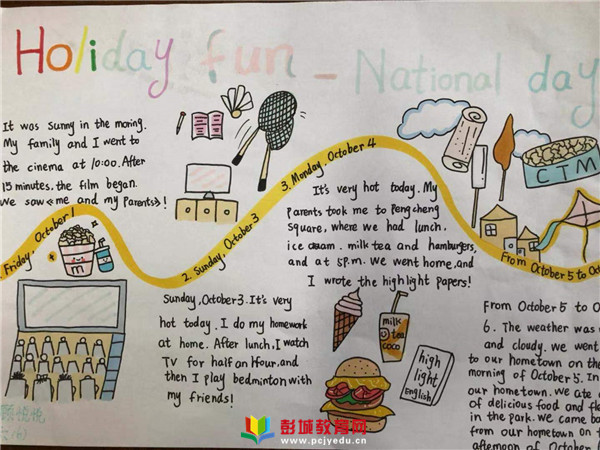 Holiday fun - National day
It was sunny in the moring.
My family and I went to
the cinema at 10:00. After
15 minutes. the film began.
We saw <<me and my Parents>> !
1. Friday, October 1
2. Sunday, October 3
Sunday, October 3. It's very
hot today. I do my homework
at home. After lunch, I watch
TV for half an Hour. and
then I play bedminton with
my friends!
3. Monday, October 4
It's very hot today. My
Parents took me to Pengcheng
Square, where we had lunch,
ice cream. milk tea and hamburgers,
and at 5p.m. we went home, and
I wrote the highlight papers!
milk
tea
coco
high
light
English
CTM
From October 5 to Octo
From October 5 to O
6. The weather was
and cloudy. we went
to our hometown on the
morning of October 5. In
our hometown. We ate
of delicious food and fle
in the park. We came ba
from our hometown on t
afternoon of October
m
彭城教育网
www.pcjyedu.cn